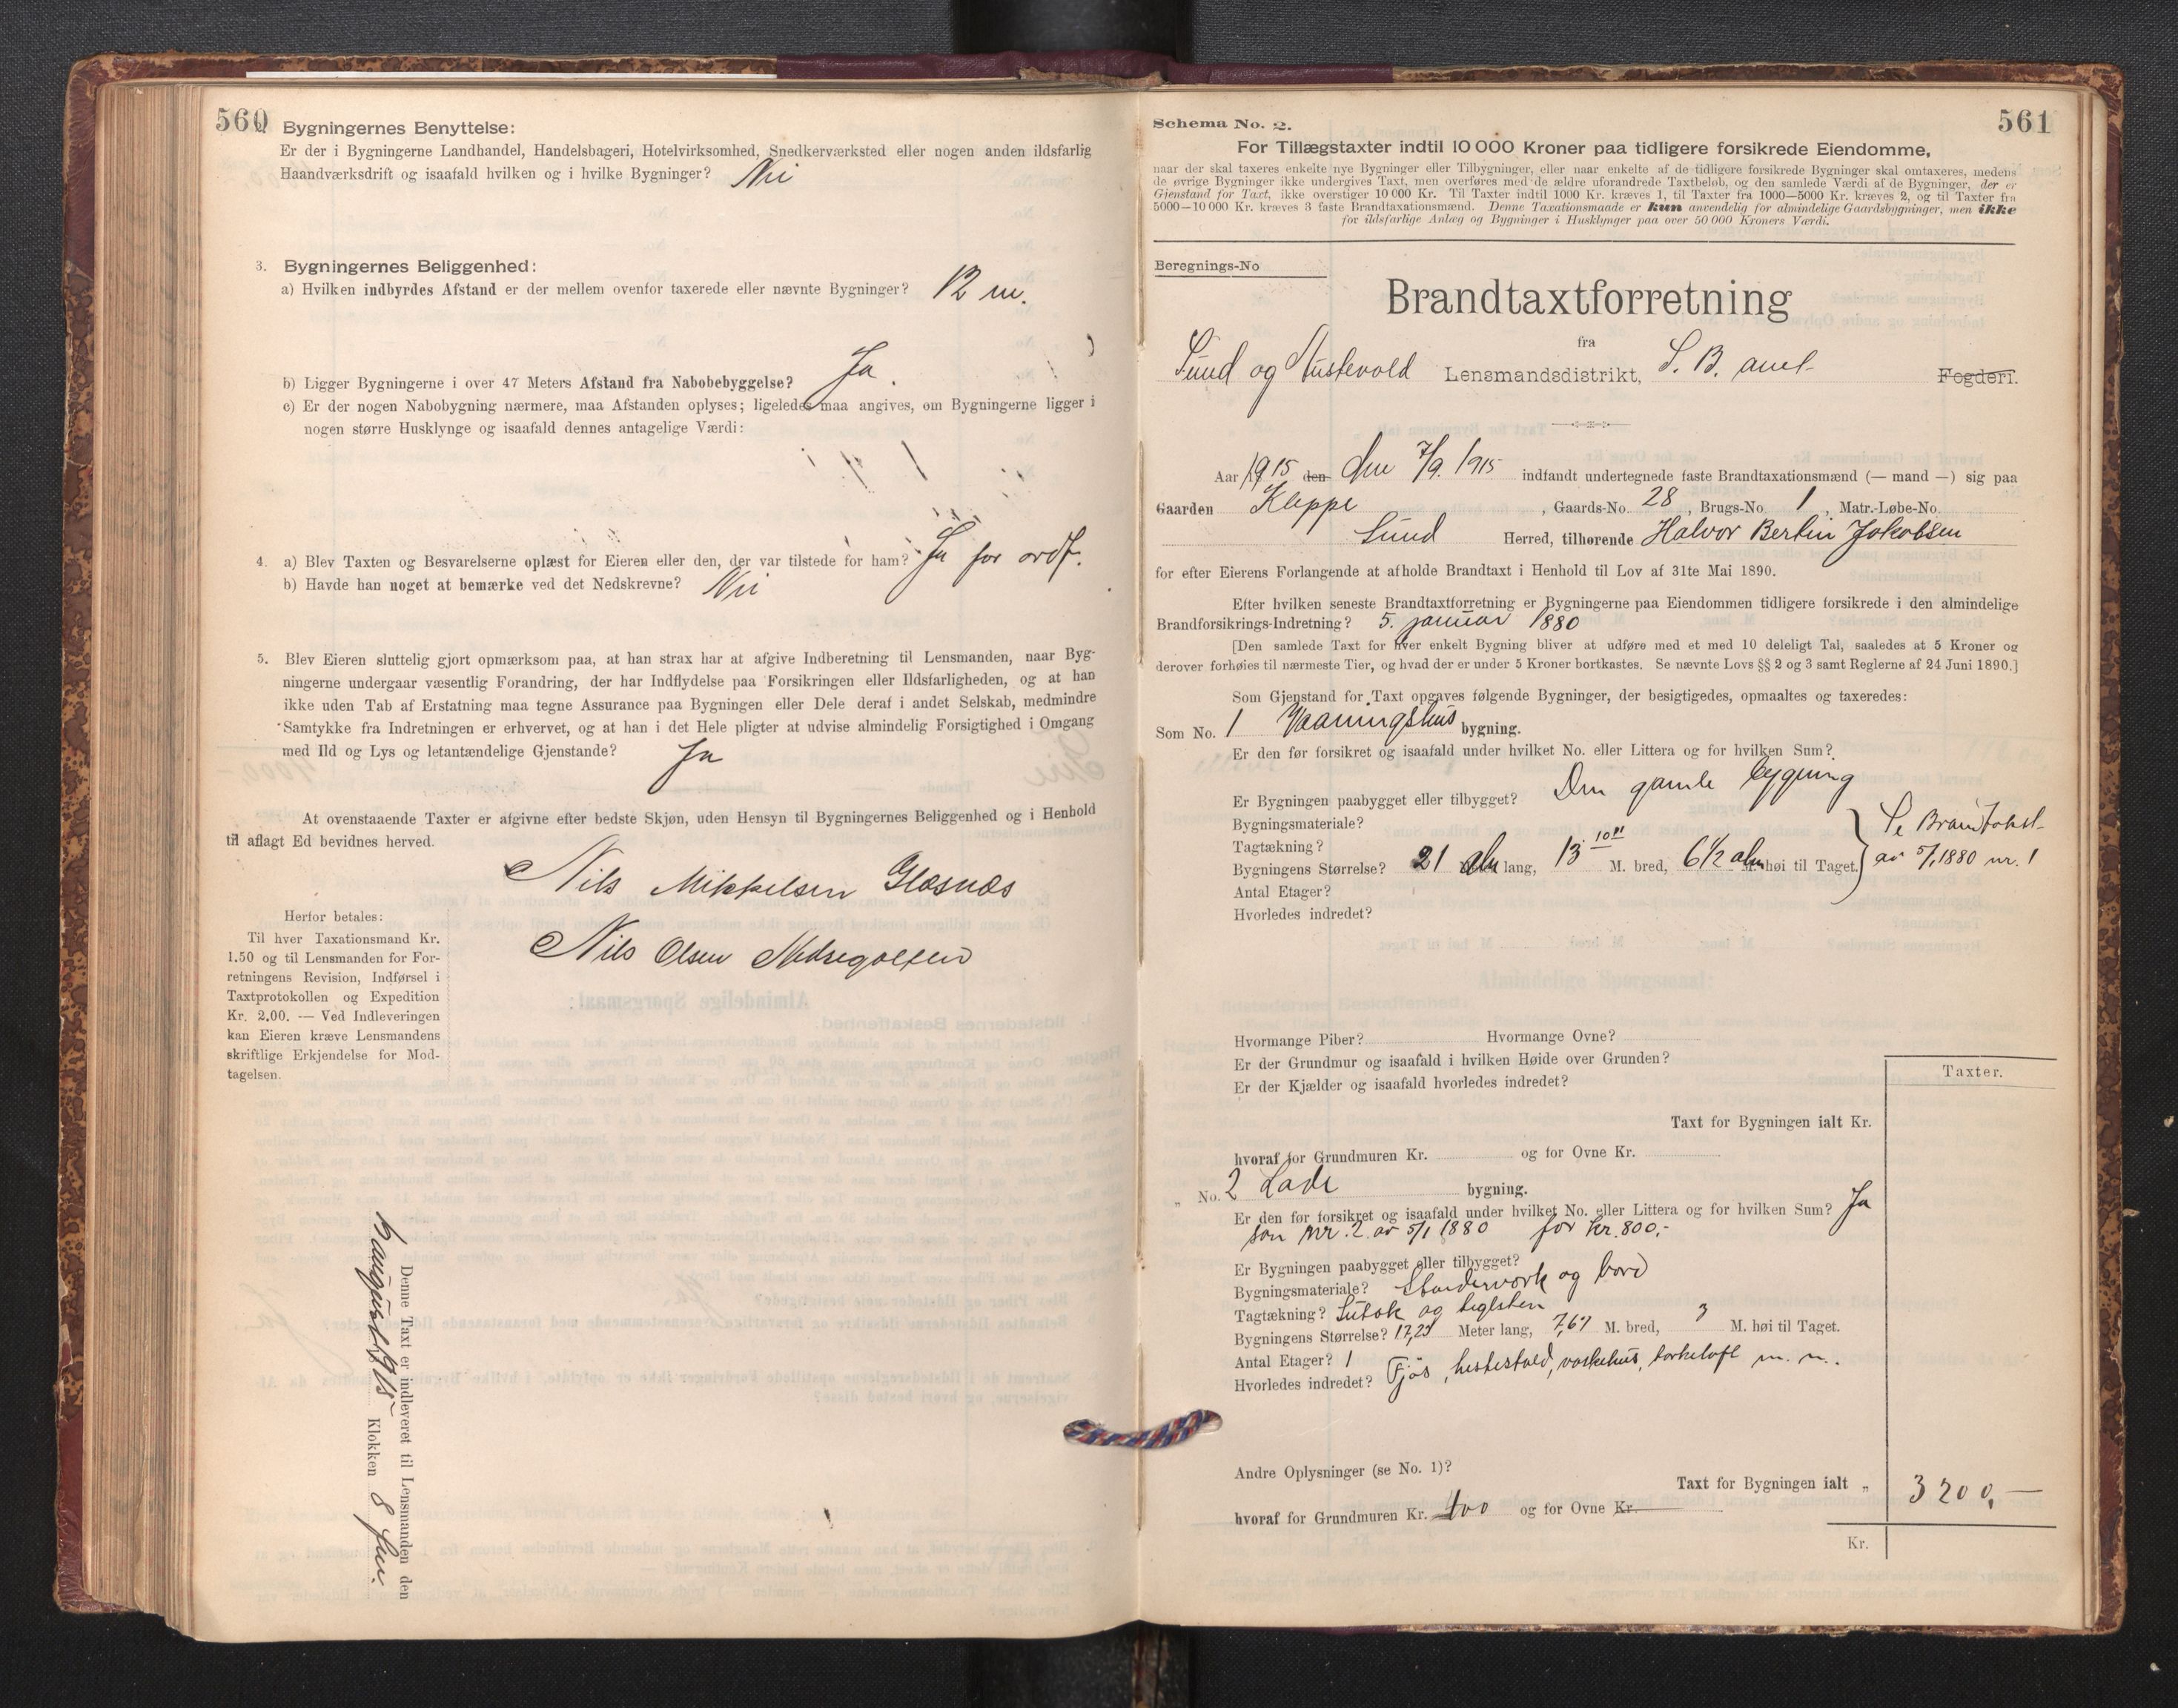 560
Bygningernes Benyttelse:
Er der i Bygningerne Landhandel, Handelsbageri, Hotelvirksomhed, Snedkerværksted eller nogen anden ildsfarlig
Haandværksdrift og isaafald hvilken og i hvilke Bygninger? Nei
3. Bygningernes Beliggenhed:
a) Hvilken indbyrdes Afstand er der mellem ovenfor taxerede eller nævnte Bygninger? 12 m.
b) Ligger Bygningerne i over 47 Meters Afstand fra Nabobebyggelse? Ja.
c) Er der nogen Nabobygning nærmere, maa Afstanden oplyses; ligeledes maa angives, om Bygningerne ligger i
nogen større Husklynge og isaafald dennes antagelige Værdi:
4. a) Blev Taxten og Besvarelserne oplæst for Eieren eller den, der var tilstede for ham? Ja for ordf.
b) Havde han noget at bemærke ved det Nedskrevne? Nei
5. Blev Eieren sluttelig gjort opmærksom paa, at han strax har at afgive Indberetning til Lensmanden, naar Byg-
ningerne undergaar væsentlig Forandring, der har Indflydelse paa Forsikringen eller Ildsfarligheden, og at han
ikke uden Tab af Erstatning maa tegne Assurance paa Bygningen eller Dele deraf i andet Selskab, medmindre
Samtykke fra Indretningen er erhvervet, og at han i det Hele pligter at udvise almindelig Forsigtighed i Omgang
med Ild og Lys og letantændelige Gjenstande? Ja
At ovenstaaende Taxter er afgivne efter bedste Skjøn, uden Hensyn til Bygningernes Beliggenhed og i Henhold
til aflagt Ed bevidnes herved.
Nils Mikkelsen Glesnæs
Nils Olsen
Herfor betales:
Til hver Taxationsmand Kr.
1.50 og til Lensmanden for For-
retningens Revision, Indførsel i
Taxtprotokollen og Expedition
Kr. 2.00. — Ved Indleveringen
kan Eieren kræve Lensmandens
skriftlige Erkjendelse for Mod-
tagelsen.
Denne Taxt er indleveret til Lensmanden den
august 1915 Klokken 8 fm.
561
Schema No. 2.
For Tillægstaxter indtil 10 000 Kroner paa tidligere forsikrede Eiendomme,
naar der skal taxeres enkelte nye Bygninger eller Tilbygninger, eller naar enkelte af de tidligere forsikrede Bygninger skal omtaxeres, medens
de øvrige Bygninger ikke undergives Taxt, men overføres med de ældre uforandrede Taxtbeløb, og den samlede Værdi af de Bygninger, der er
Gjenstand for Taxt, ikke overstiger 10 000 Kr. Til Taxter indtil 1000 Kr. kræves 1, til Taxter fra 1000—5000 Kr. kræves 2, og til Taxter fra
5000—10 000 Kr. kræves 3 faste Brandtaxationsmænd. Denne Taxationsmaade er kun anvendelig for almindelige Gaardsbygninger, men ikke
for ildsfarlige Anlæg og Bygninger i Husklynger paa over 50 000 Kroners Værdi.
Beregnings-No
Brandtaxtforretning
fra
Sund og Austevold Lensmandsdistrikt, S. B. amt Fogderi.
Aar 1915 den den 7/9. 1915 indfandt undertegnede faste Brandtaxationsmænd (— mand —) sig paa
Gaarden Kleppe, Gaards-No. 28, Brugs-No. 1, Matr.-Løbe-No.
Sund Herred, tilhørende Halvor Bertin Jakobsen
for efter Eierens Forlangende at afholde Brandtaxt i Henhold til Lov af 31te Mai 1890.
Efter hvilken seneste Brandtaxtforretning er Bygningerne paa Eiendommen tidligere forsikrede i den almindelige
Brandforsikrings-Indretning? 5. januar 1880
[Den samlede Taxt for hver enkelt Bygning bliver at udføre med et med 10 deleligt Tal, saaledes at 5 Kroner og
derover forhøies til nærmeste Tier, og hvad der er under 5 Kroner bortkastes. Se nævnte Lovs §§ 2 og 3 samt Reglerne af 24 Juni 1890.]
Som Gjenstand for Taxt opgaves følgende Bygninger, der besigtigedes, opmaaltes og taxeredes:
Som No. 1 Vaaningshus bygning.
Er den før forsikret og isaafald under hvilket No. eller Littera og for hvilken Sum?
Er Bygningen paabygget eller tilbygget? Den gamle bygning
Bygningsmateriale?
Tagtækning?
Bygningens Størrelse? 21 aln lang, 13 10" M. bred, 6 1/2 aln M. høi til Taget.
Se Brandtakst
av 5/1 1880 nr. 1
Antal Etager?
Hvorledes indredet?
Hvormange Piber? Hvormange Ovne?
Er der Grundmur og isaafald i hvilken Høide over Grunden?
Er der Kjælder og isaafald hvorledes indredet?
Taxter.
Taxt for Bygningen ialt Kr.
hvoraf for Grundmuren Kr. og for Ovne Kr.
„ No. 2 Lade bygning.
Er den før forsikret og isaafald under hvilket No. eller Littera og for hvilken Sum? Ja
som nr. 2 av 5/1 1880 for kr. 800.-
Er Bygningen paabygget eller tilbygget?
Bygningsmateriale? Stenderverk og bord
Tagtækning? Sutak og teglsten
Bygningens Størrelse? 17,25 Meter lang, 7,67 M. bred, 3 M. høi til Taget.
Antal Etager? 1
Hvorledes indredet? Fjøs, hestestald, vaskehus, torkeloft m. m.
Andre Oplysninger (se No. 1)?
Taxt for Bygningen ialt „ 3200,—
hvoraf for Grundmuren Kr. 400 og for Ovne Kr.
Kr.